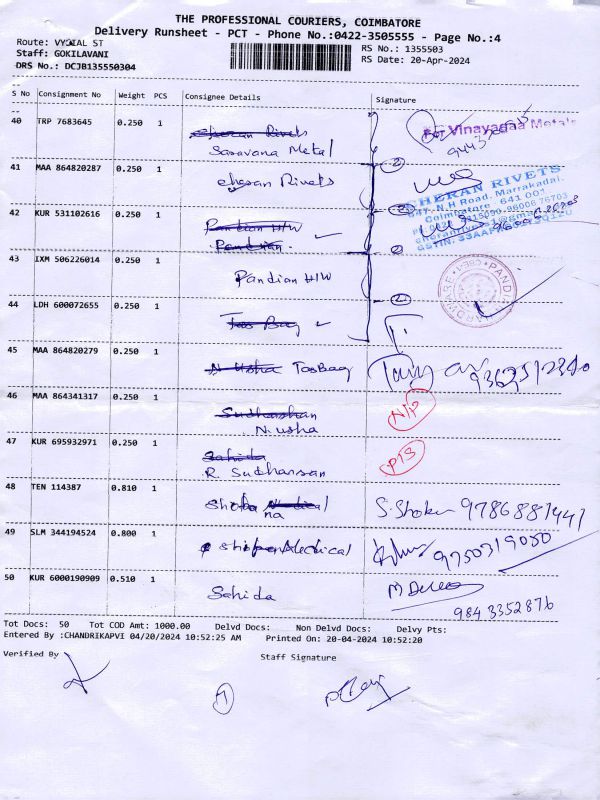 THE PROFESSIONAL COURIERS, COIMBATORE
Delivery Runsheet - PCT - Phone No.:0422-3505555 - Page No.:4
Route: VYSIAL ST
RS No.: 1355503
Staff: GOKILAVANI
RS Date: 20-Apr-2024
DRS No.: DCJB135550304
S No Consignment No Weight PCS Consignee Details Signature
40 TRP 7683645 0.250 1 Cheran Rivets
Saravana Metal
For Vinayagaa Metals
41 MAA 864820287 0.250 1 cheran Rivets
2
CHERAN RIVETS
647, N.H Road, Marrakadai,
Coimbatore 641 001
42 KUR 531102616 0.250 1 Pandian H/W
Pandian.
2
43 IXM 506226014 0.250 1 Pandian H/W
2
44 LDH 600072655 0.250 1 Tas Bag
2
45 MAA 864820279 0.250 1 N Usha Tas Bag
46 MAA 864341317 0.250 1 Sudharshan
N. usha
N/P
47 KUR 695932971 0.250 1 Sahida
R. Sudhansan
PTS
48 TEN 114387 0.810 1 Shoba
na
9786881441
49 SLM 344194524 0.800 1
9750319050
50 KUR 6000190909 0.510 1 Sahida
9843352876
Tot Docs: 50 Tot COD Amt: 1000.00 Delvd Docs: Non Delvd Docs: Delvy Pts:
Entered By :CHANDRIKAPVI 04/20/2024 10:52:25 AM Printed On: 20-04-2024 10:52:20
Verified By Staff Signature